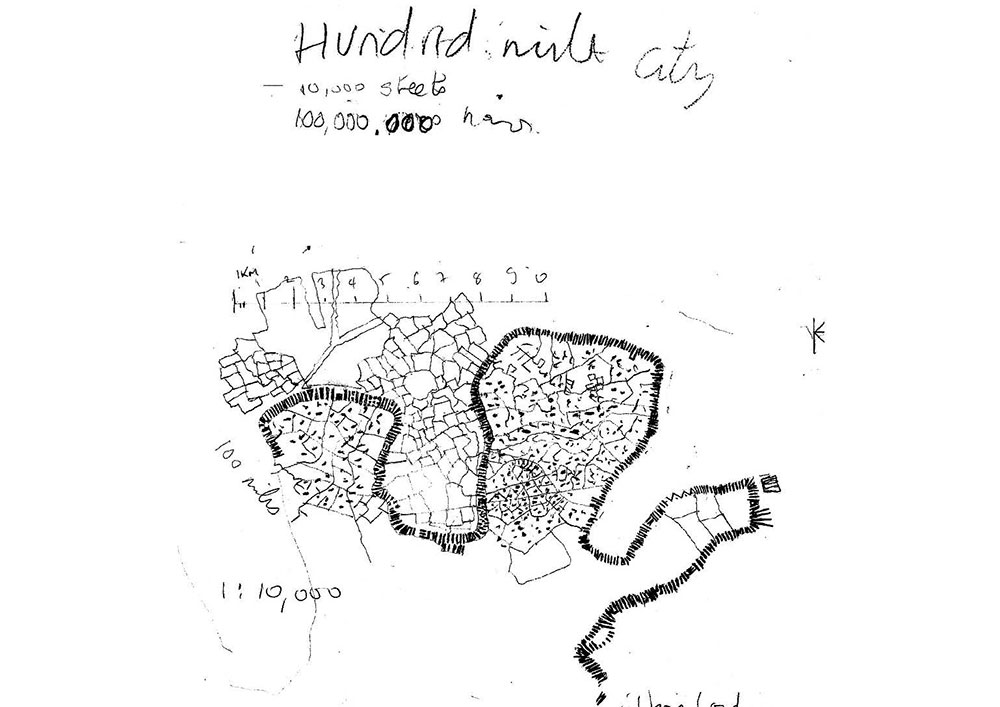 Hundred mile City
- 10,000 streets
100,000,000
1KM 2 3 4 5 6 7 8 9 0
100 miles
1:10,000